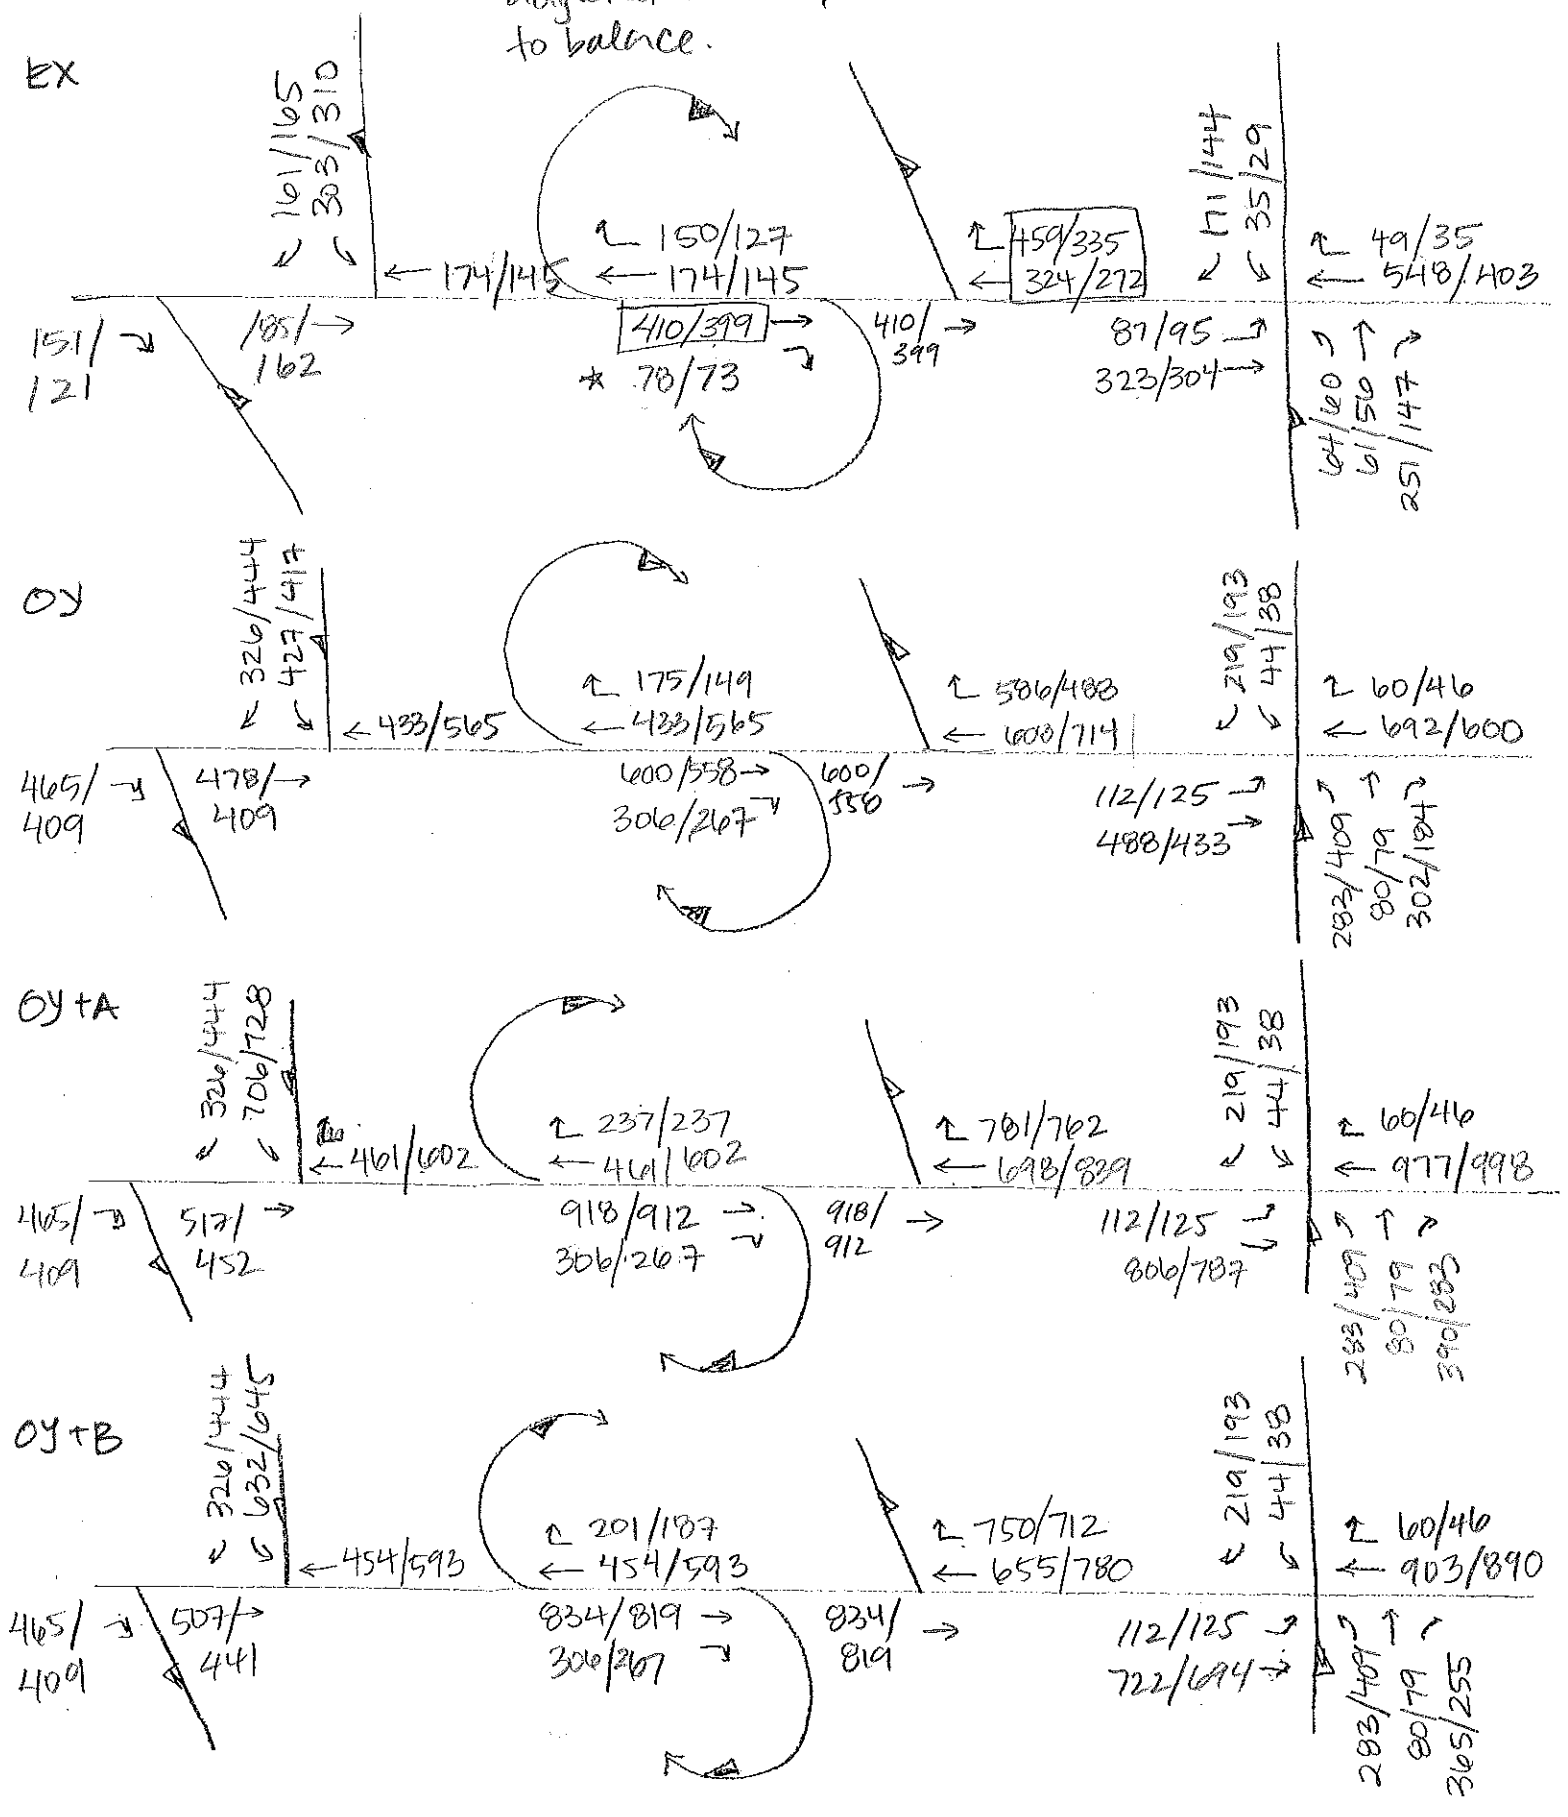 to balance.
EX
161/165
303/310
174/145
150/127
174/145
459/335
324/272
171/144
35/29
49/35
548/403
151/
121
185/
162
410/399
* 78/73
410/
399
87/95
323/304
64/60
61/56
251/147
OY
326/444
427/417
433/565
175/149
433/565
586/488
600/714
219/193
44/38
60/46
692/600
465/
409
478/
409
600/558
306/267
600/
558
112/125
488/433
283/409
80/79
302/184
OY+A
326/444
706/728
461/602
237/237
461/602
781/762
698/839
219/193
44/38
60/46
977/998
465/
409
517/
452
918/912
306/267
918/
912
112/125
806/787
283/409
80/79
390/283
OY+B
326/444
632/645
454/593
201/187
454/593
750/712
655/780
219/193
44/38
60/46
903/890
465/
409
507/
441
834/819
306/267
834/
819
112/125
722/694
283/409
80/79
365/255